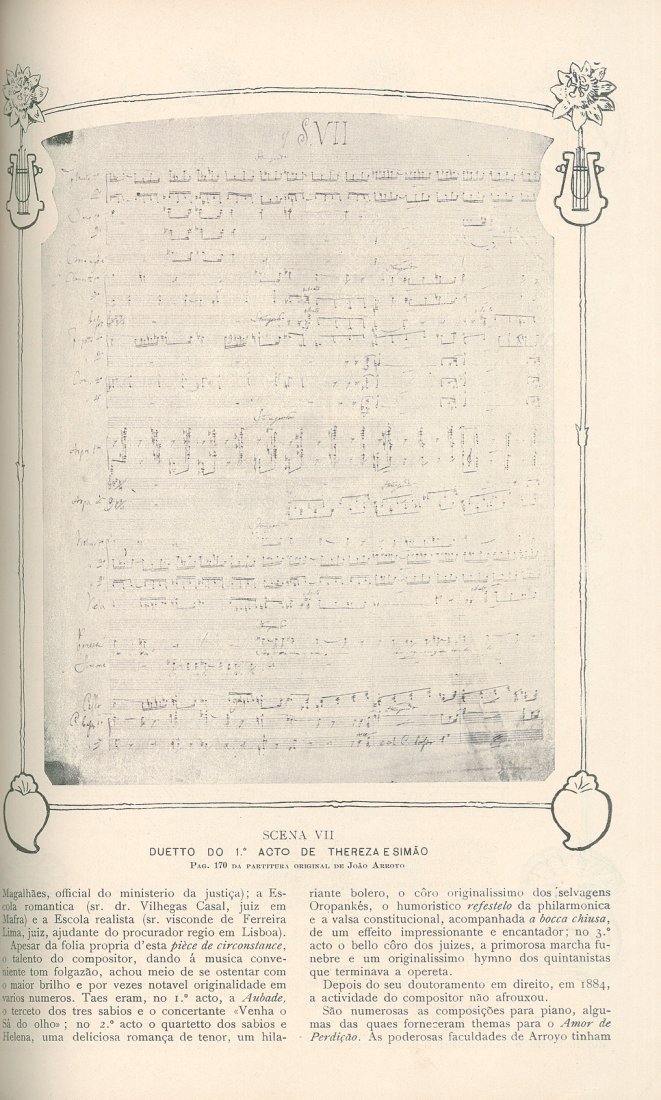 S. VII
SCENA VII
DUETTO DO 1.º ACTO DE THEREZA E SIMÃO
PAG. 170 DA PARTITURA ORIGINAL DE JOÃO ARROYO
Magalhães, official do ministerio da justiça); a Es-
cola romantica (sr. dr. Vilhegas Casal, juiz em
Mafra) e a Escola realista (sr. visconde de Ferreira
Lima, juiz, ajudante do procurador regio em Lisboa).
Apesar da folia propria d'esta pièce de circonstance,
o talento do compositor, dando á musica conve-
niente tom folgazão, achou meio de se ostentar com
o maior brilho e por vezes notavel originalidade em
varios numeros. Taes eram, no 1.º acto, a Aubade,
o terceto dos tres sabios e o concertante «Venha o
Sá do olho»; no 2.º acto o quartetto dos sabios e
Helena, uma deliciosa romança de tenor, um hila-
riante bolero, o côro originalissimo dos selvagens
Oropankés, o humoristico refestelo da philarmonica
e a valsa constitucional, acompanhada a bocca chiusa,
de um effeito impressionante e encantador; no 3.º
acto o bello côro dos juizes, a primorosa marcha fu-
nebre e um originalissimo hymno dos quintanistas
que terminava a opereta.
Depois do seu doutoramento em direito, em 1884,
a actividade do compositor não afrouxou.
São numerosas as composições para piano, algu-
mas das quaes forneceram themas para o Amor de
Perdição. As poderosas faculdades de Arroyo tinham